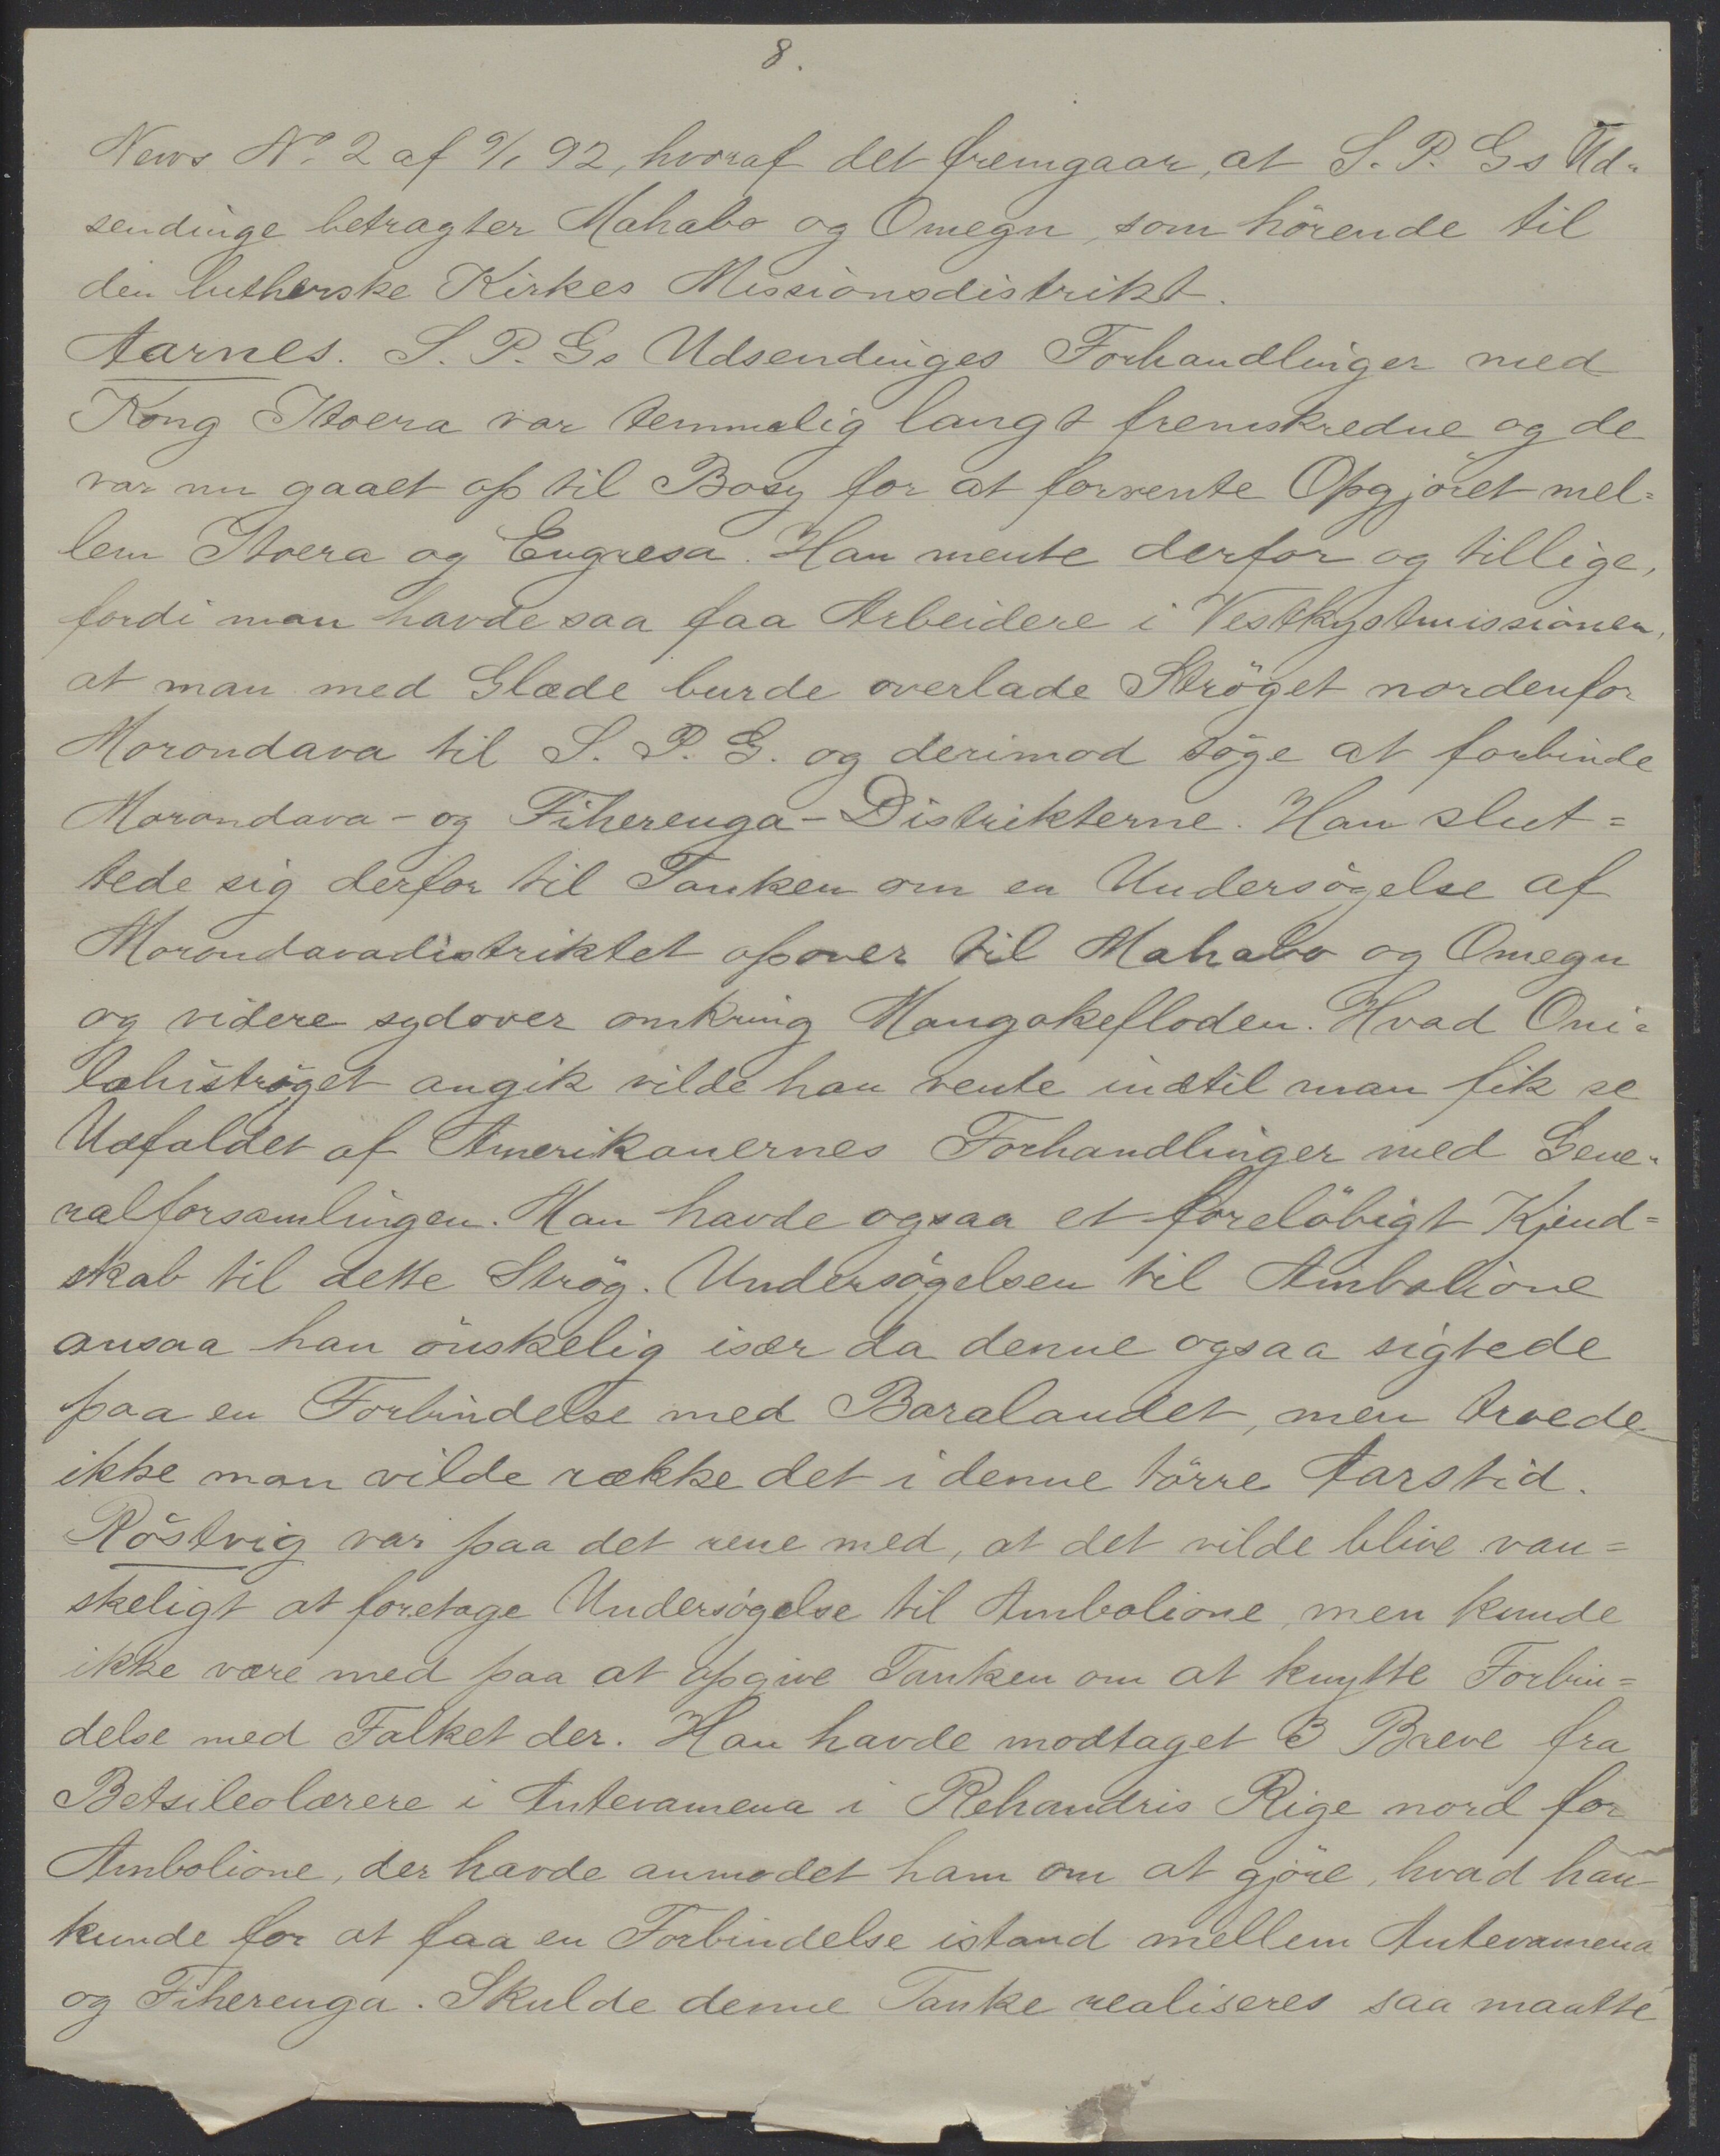 8.
News No. 2 af 9/1 92, hvoraf det fremgaar, at S. P. Gs Ud-
sendinge betragter Mahabo og Omegn, som hörende til
den lutherske Kirkes Missionsdistrikt.
Aarnes. S. P. Gs Udsendinges Forhandlinger med
Kong Itoera var temmelig langt fremskredne og de
var nu gaaet op til Bosy for at forvente Opgjöret mel=
lem Itoera og Engresa. Han mente derfor og tillige,
fordi man havde saa faa Arbeidere i Vestkystmissionen,
at man med Glæde burde overlade Ströget nordenfor
Morondava til S. P. G. og derimod söge at forbinde
Morondava- og Fiherenga-Distrikterne. Han slut=
tede sig derfor til Tanken om en Undersögelse af
Morondavadistriktet opover til Mahabo og Omegn
og videre sydover omkring Mangokefloden. Hvad Oni=
lahiströget angik vilde han vente indtil man fik se
Udfaldet af Amerikanernes Forhandlinger med Gene-
ralforsamlingen. Man havde ogsaa et foreløbigt Kjend=
skab til dette Strög. Undersögelsen til Ambolione
ansaa han önskelig især da denne ogsaa sigtede
paa en Forbindelse med Baralandet, men troede
ikke man vilde række det i denne törre Aarstid.
Röstvig var paa det rene med, at det vilde blive van=
skeligt at foretage Undersögelse til Ambolione, men kunde
ikke være med paa at opgive Tanken om at knytte Forbin=
delse med Folket der. Han havde modtaget 3 Breve fra
Betsileolærere i Antevamena i Rehandris Rige nord for
Ambolione, der havde anmodet ham om at gjöre, hvad han
kunde for at faa en Forbindelse istand mellem Antevamena
og Fiherenga. Skulde denne Tanke realiseres saa maatte